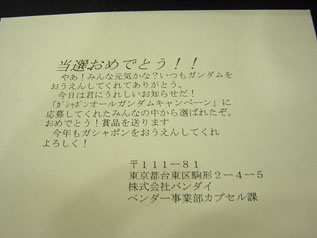 当選おめでとう！！
やあ！みんな元気かな？いつもガンダムを
おうえんしてくれてありがとう。
今日は君にうれしいお知らせだ！
「ｶﾞｼｬﾎﾟﾝオールガンダムキャンペーン」に
応募してくれたみんなの中から選ばれたぞ。
おめでとう！賞品を送ります
今年もガシャポンをおうえんしてくれ
よろしく！
〒１１１－８１
東京都台東区駒形２－４－５
株式会社バンダイ
ベンダー事業部カプセル課